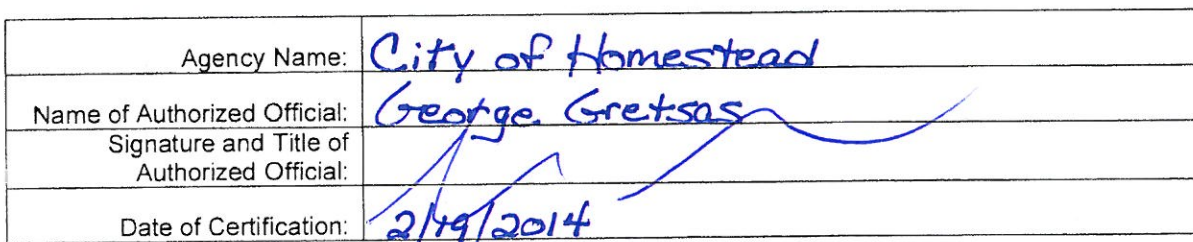 Agency Name: City of Homestead
Name of Authorized Official: George Gretsas
Signature and Title of
Authorized Official:
Date of Certification: 2/19/2014